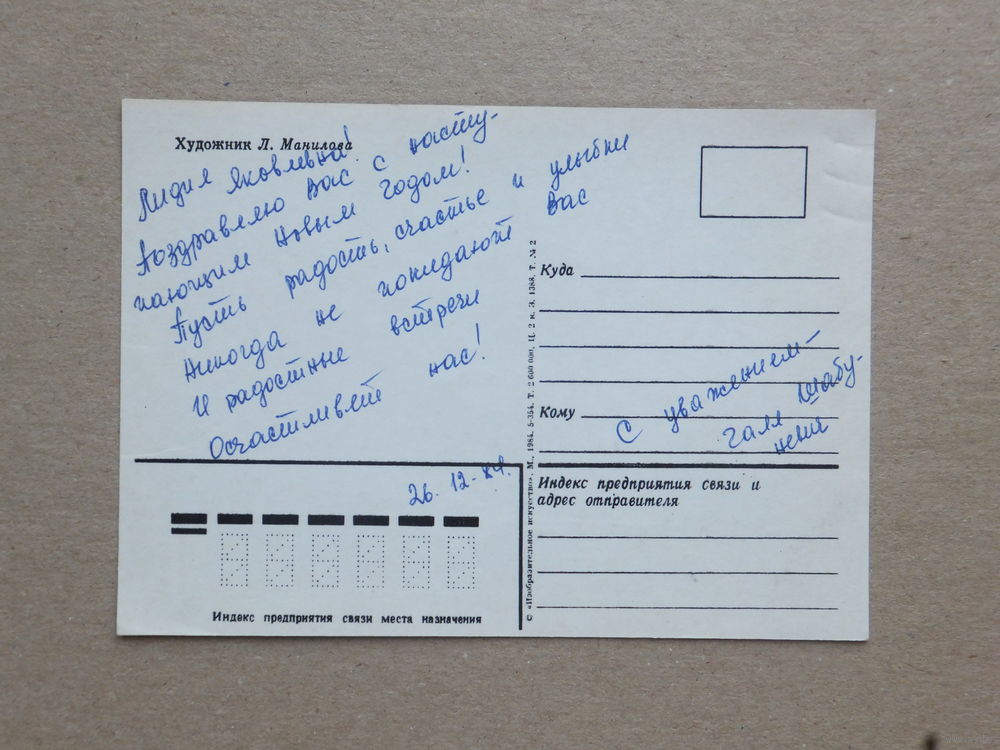 Художник Л. Манилова
Лидия Яковлевна!
Поздравляю Вас с насту-
пающим Новым Годом!
Пусть радость, счастье и улыбки
Никогда не покидают Вас
И радостные встречи
Осчастливят нас!
26. 12-84.
С уважением-
Галя Шабу-
невич
Куда
Кому
Индекс предприятия связи и
адрес отправителя
Индекс предприятия связи места назначения
© «Изобразительное искусство». М., 1984. 5-354. Т. 2 600 000. Ц. 2 к. З. 1388. Т. № 2